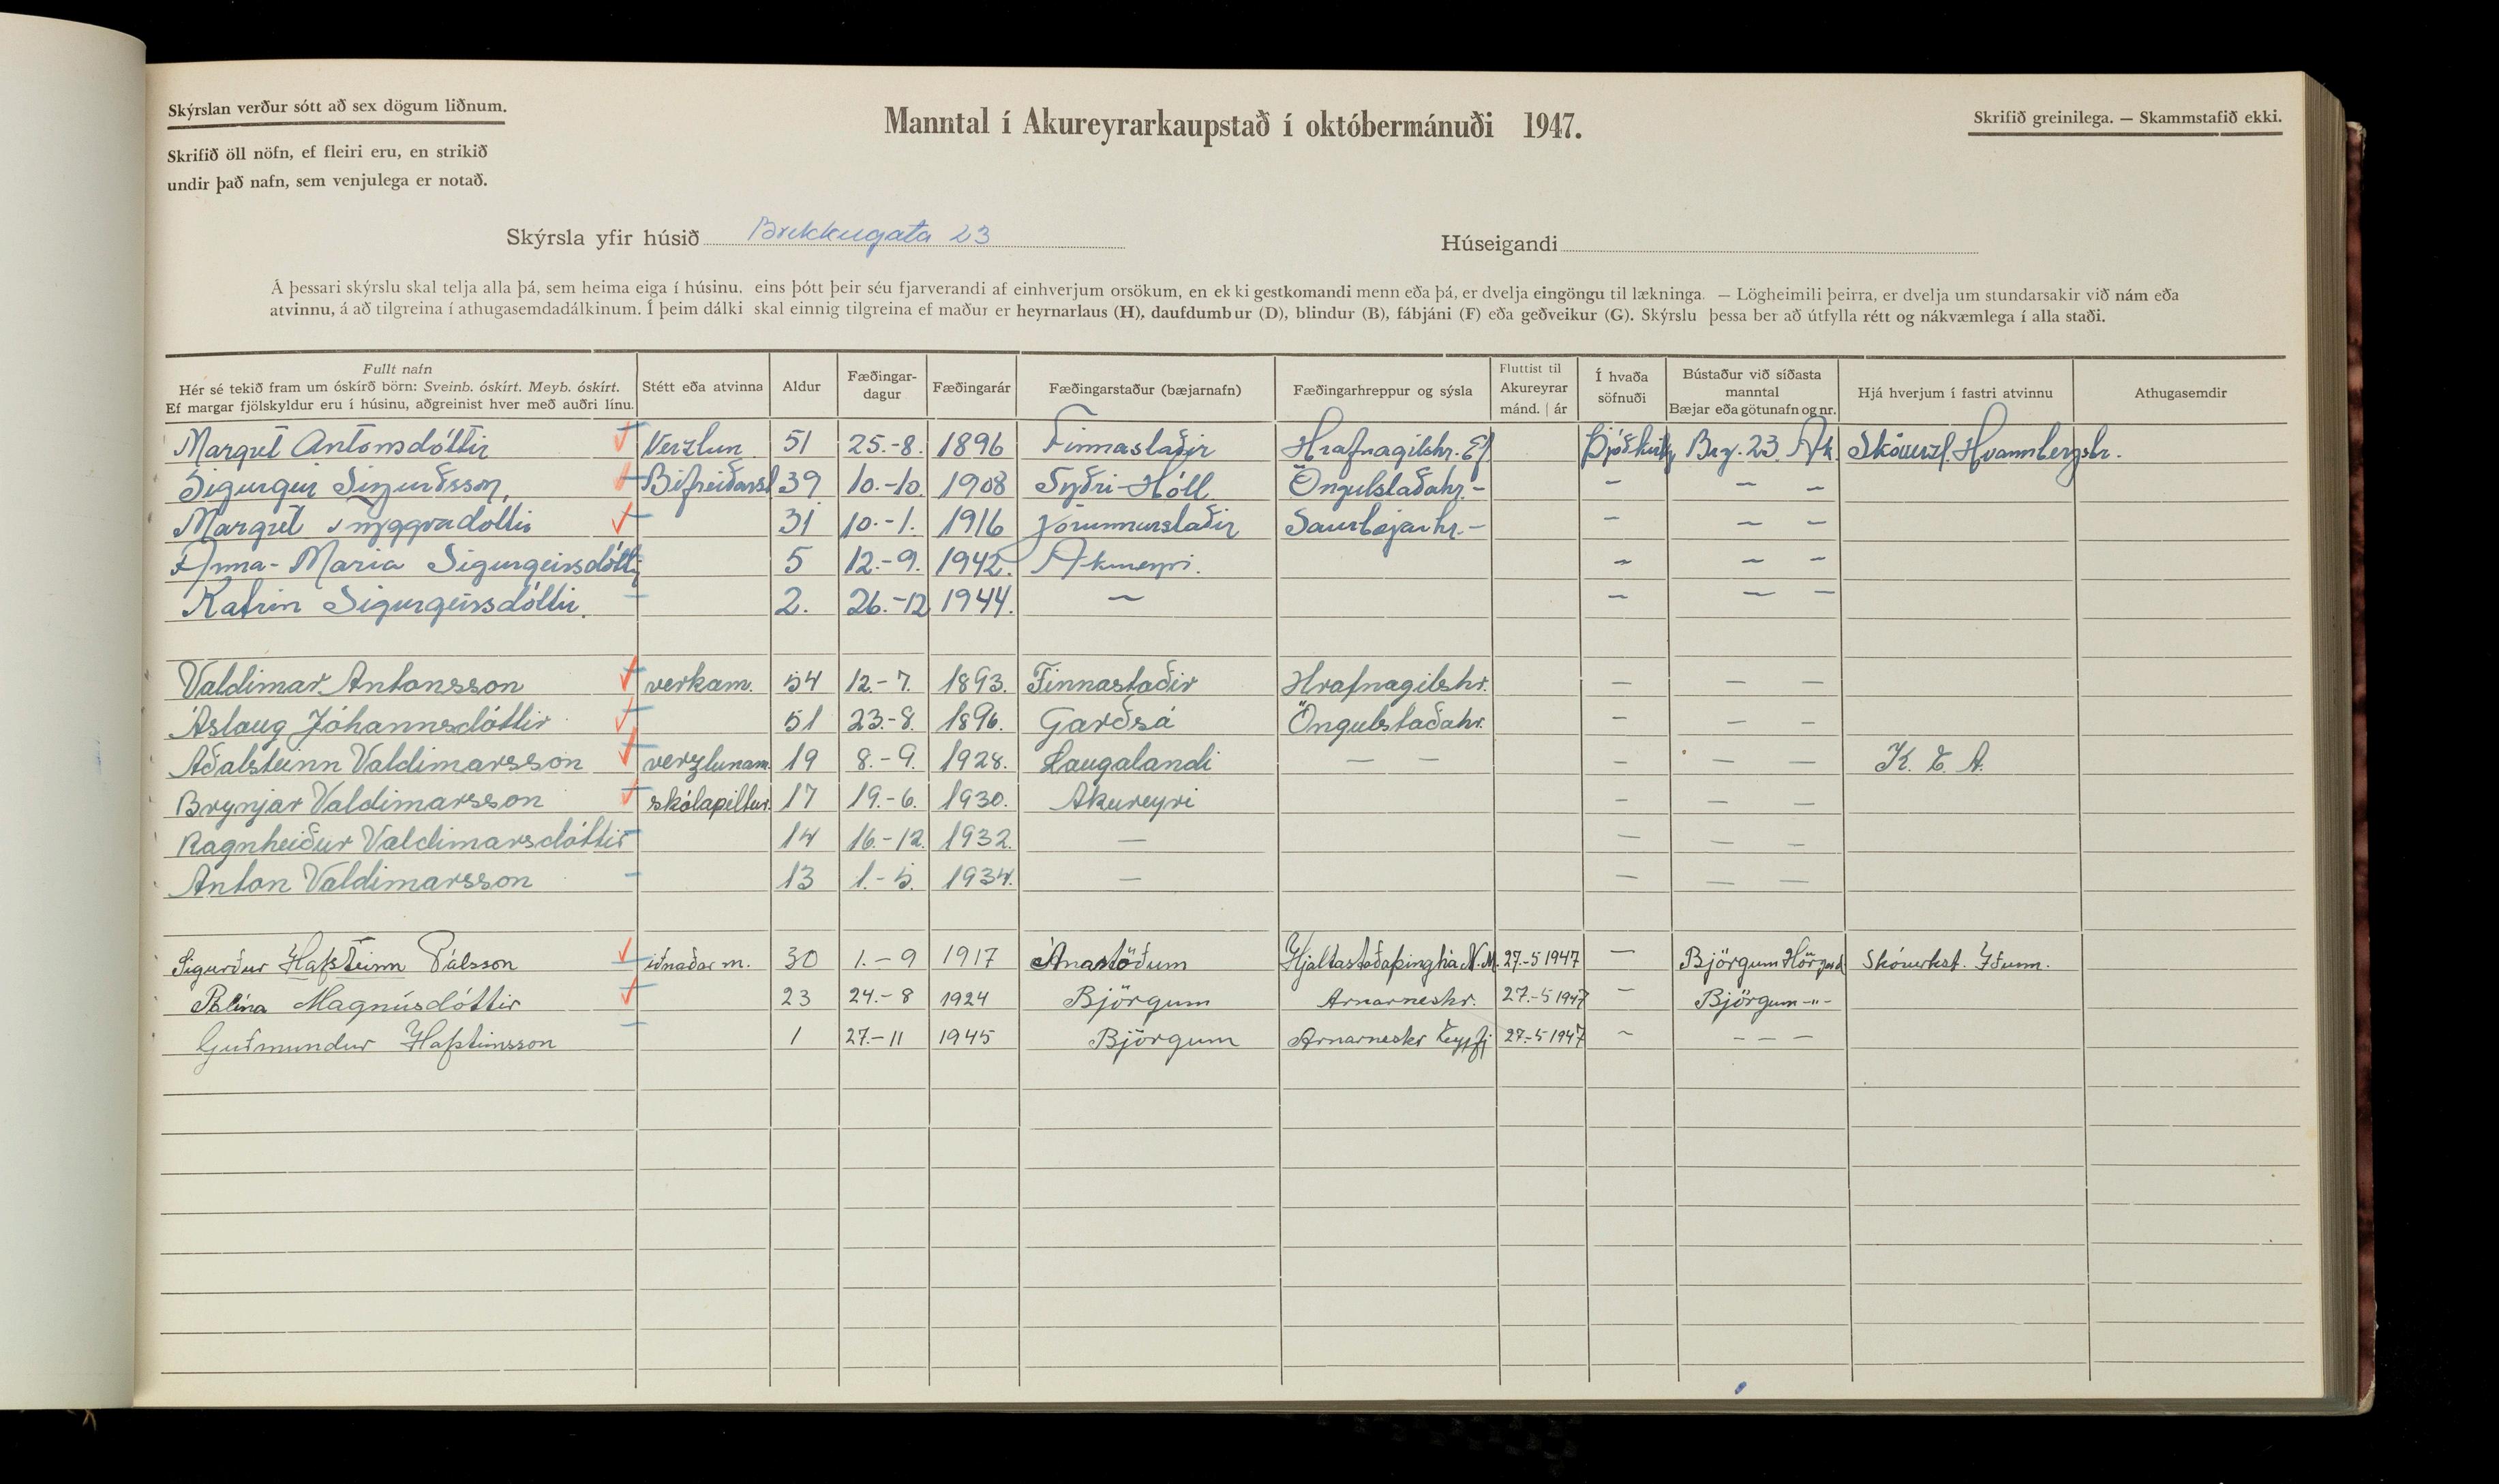 Skýrslan verður sótt að sex dögum liðnum.
Skrifið öll nöfn, ef fleiri eru, en strikið
undir það nafn, sem venjulega er notað.
Manntal í Akureyrarkaupstað í októbermánuði 1947.
Skrifið greinilega. — Skammstafið ekki.
Skýrsla yfir húsið Brekkugata 23
Húseigandi
Á þessari skýrslu skal telja alla þá, sem heima eiga í húsinu, eins þótt þeir séu fjarverandi af einhverjum orsökum, en ekki gestkomandi menn eða þá, er dvelja eingöngu til lækninga. — Lögheimili þeirra, er dvelja um stundarsakir við nám eða
atvinnu, á að tilgreina í athugasemdadálkinum. Í þeim dálki skal einnig tilgreina ef maður er heyrnarlaus (H), daufdumbur (D), blindur (B), fábjáni (F) eða geðveikur (G). Skýrslu þessa ber að útfylla rétt og nákvæmlega í alla staði.
Fullt nafn
Hér sé tekið fram um óskírð börn: Sveinb. óskírt. Meyb. óskírt.
Ef margar fjölskyldur eru í húsinu, aðgreinist hver með auðri línu.
Stétt eða atvinna
Aldur
Fæðingar-
dagur
Fæðingarár
Fæðingarstaður (bæjarnafn)
Fæðingarhreppur og sýsla
Fluttist til
Akureyrar
mánd. | ár
Í hvaða
söfnuði
Bústaður við síðasta
manntal
Bæjar eða götunafn og nr.
Hjá hverjum í fastri atvinnu
Athugasemdir
Margret Antonsdóttir Verzlun 51 25.-8. 1896 Finnastaðir Hrafnagilshr. Ef Þjóðkirkj Brg. 23 Ak. Skóverzl. Hvannbergsbr.
Sigurgeir Sigurðsson Bifreiðarst 39 10.-10. 1908 Syðri-Hóll Öngulstaðahr. - — — —
Margrét Tryggvadóttir 31 10.-1. 1916 Jórunnarstaðir Saurbæjarhr. - — — —
Anna-Maria Sigurgeirsdóttir 5 12.-9. 1942. Akureyri. — — —
Katrin Sigurgeirsdóttir. 2. 26.-12 1944. — — — —
Valdimar Antonsson verkam. 54 12.-7. 1893. Finnastaðir Hrafnagilshr. — — —
Áslaug Jóhannsdóttir 51 23.-8. 1896. Garðsá Öngulstaðahr. — — —
Aðalsteinn Valdimarsson verzlunam. 19 8.-9. 1928. Laugalandi — — — — — K. E. A.
Brynjar Valdimarsson skólapiltur. 17 19.-6. 1930. Akureyri — — —
Ragnheiður Valdimarsdóttir 14 16.-12. 1932. — — — —
Anton Valdimarsson 13 1.-5. 1934. — — — —
Sigurður Hafsteinn Pálsson iðnaðar m. 30 1.-9 1917 Ánastöðum Hjaltastaðaþinghá N.M. 27.-5 1947 — Björgum Hörgárd Skóverkst. Iðunn.
Pálína Magnúsdóttir 23 24.-8 1924 Björgum Arnarneshr. 27.-5 1947 — Björgum -"-
Guðmundur Hafsteinsson 1 27.-11 1945 Björgum Arnarneshr Eyjfj 27.-5 1947 — — — —